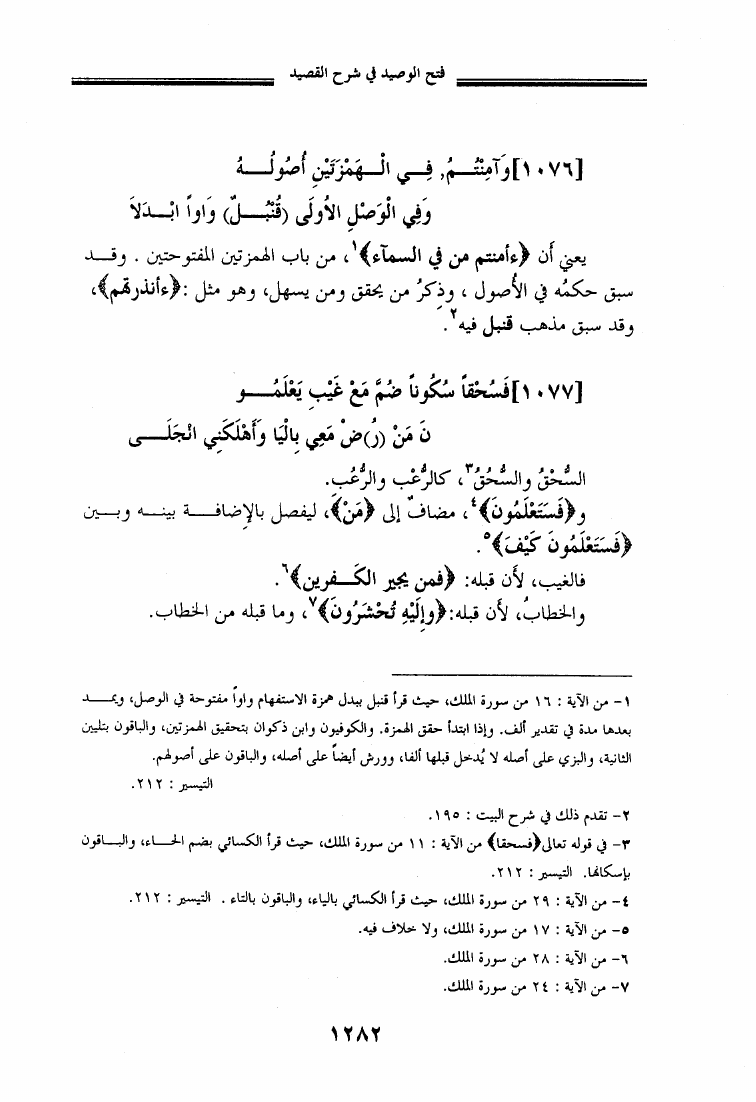 فتح الوصيد في شرح القصيد
[١٠٧٦] وَآمِنْتُـــمُ, فِـــي الْـــهَمْزَتَيْنِ أُصُولُـــهُ
وَفِي الْوَصْلِ الأُولَى (قُنْبُـــلٌ) وَاواً ابْـــدَلاَ
يعني أن ﴿ءأمنتم من في السمآء﴾١، من باب الهمزتين المفتوحتين . وقـــد
سبق حكمُه في الأصول ، وذِكرُ من يحقق ومن يسهل، وهو مثل :﴿ءأنذرتهم﴾،
وقد سبق مذهب قنبل فيه٢.
[١٠٧٧] فَسُحْقاً سُكُوناً ضُمَّ مَعْ غَيْبِ يَعْلَمُـــو
نَ مَنْ (رُ)ضْ مَعِي بِالْيَا وَأَهْلَكَنِي انْجَلَـــى
السُّحْقُ والسُّحُقُ٣، كالرُّعْب والرُّعُبِ.
و﴿فَسَتَعْلَمُونَ﴾٤، مضافٌ إلى ﴿مَنْ﴾، ليفصل بالإضافـــة بينـــه وبـــين
﴿فَسَتَعْلَمُونَ كَيْفَ﴾٥.
فالغيب، لأن قبله: ﴿فمن يجير الكـــفرين﴾٦.
والخطابُ، لأن قبله:﴿وإِلَيْهِ تُحْشَرُونَ﴾٧، وما قبله من الخطاب.
١- من الآية : ١٦ من سورة الملك، حيث قرأ قنبل ببدل همزة الاستفهام واواً مفتوحة في الوصل، ويمـــد
بعدها مدة في تقدير ألف. وإذا ابتدأ حقق الهمزة. والكوفيون وابن ذكوان بتحقيق الهمزتين، والباقون بتليين
الثانية، والبزي على أصله لا يُدخل قبلها ألفا، وورش أيضاً على أصله، والباقون على أصولهم.
التيسير : ٢١٢.
٢- تقدم ذلك في شرح البيت : ١٩٥.
٣- في قوله تعالى﴿فسحقا﴾ من الآية : ١١ من سورة الملك، حيث قرأ الكسائي بضم الحـــاء، والبـــاقون
بإسكانها. التيسير : ٢١٢.
٤- من الآية : ٢٩ من سورة الملك، حيث قرأ الكسائي بالياء، والباقون بالتاء . التيسير : ٢١٢.
٥- من الآية : ١٧ من سورة الملك، ولا خلاف فيه.
٦- من الآية : ٢٨ من سورة الملك.
٧- من الآية : ٢٤ من سورة الملك.
١٢٨٢